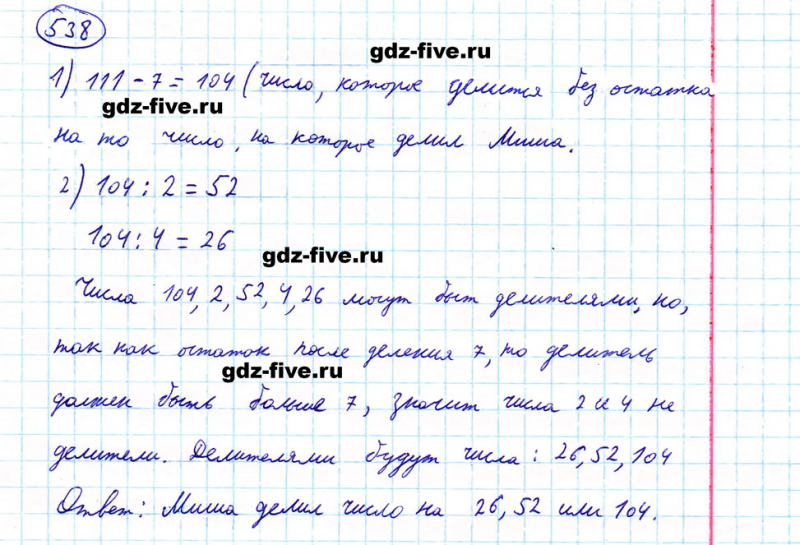 538
gdz-five.ru
1) 111 - 7 = 104 (число, которое делится без остатка
gdz-five.ru
на то число, на которое делил Миша.
2) 104 : 2 = 52
104 : 4 = 26
gdz-five.ru
Числа 104, 2, 52, 4, 26 могут быт делителями, но,
так как остаток после деления 7, то делитель
gdz-five.ru
должен быть больше 7, значит числа 2 и 4 не
делители. Делителями будут числа : 26, 52, 104
Ответ: Миша делил число на 26, 52 или 104.